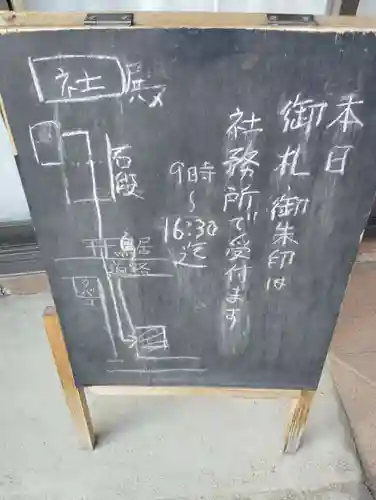 本日
御札 御朱印は
社務所で受付ます
9時
〜
16:30
迄
社殿
石段
鳥居